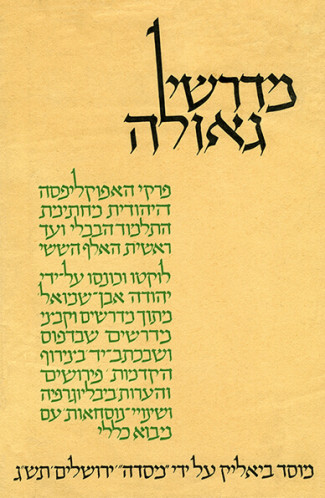 מדרשי
גאולה
פרקי האפוקליפסה
היהודית מחתימת
התלמוד הבבלי ועד
ראשית האלף הששי
לוקטו וכונסו על־ידי
יהודה אבן־שמואל
מתוך מדרשים וקבצי
מדרשים שבדפוס
ושבכתב־יד בצרוף
הקדמות פירושים
והערות ביבליוגרפיה
ושינויי־נוסחאות עם
מבוא כללי
מוסד ביאליק על ידי "מסדה" ירושלים תש"ג